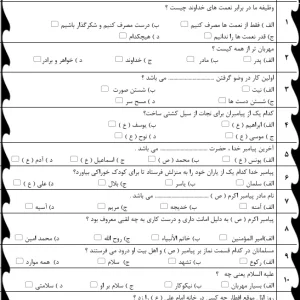 وظیفه ما در برابر نعمت های خداوند چیست ؟
۱
الف) فقط از نعمت ها مصرف کنیم ب) درست مصرف کنیم و شکرگذار باشیم
ج) قدر نعمت ها را ندانیم د) هیچکدام
مهربان تر از همه کیست ؟
۲
الف) پدر ب) مادر ج) خداوند د) خواهر و برادر
اولین کار در وضو گرفتن .................... می باشد ؟
۳
الف) نیت ب) شستن صورت
ج) شستن دست ها د) مسح سر
کدام یک از پیامبران برای نجات از سیل کشتی ساخت؟
۴
الف) ابراهیم ( ع ) ب) یوسف ( ع )
ج) موسی ( ع ) د) نوح ( ع )
آخرین پیامبر خدا ، حضرت .................... می باشد .
۵
الف) یونس ( ع ) ب) محمد ( ص ) ج) اسماعیل ( ع ) د) آدم ( ع )
پیامبر خدا کدام یک از یاران خود را به منزلش فرستاد تا برای کودک خوراکی بیاورد؟
۶
الف) سلمان ب) یاسر ج) بلال د) علی ( ع )
نام مادر پیامبر اکرم ( ص ) .................... می باشد ؟
۷
الف) آمنه ب) خدیجه ج) مریم د) آسیه
پیامبر اکرم ( ص ) به دلیل امانت داری و درست کاری به چه لقبی معروف بود ؟
۸
الف) امیر المؤمنین ب) خاتم الأنبیاء ج) روح الله د) محمد امین
مسلمانان در کدام قسمت نماز بر پیامبر ( ص ) و اهل بیت او درود می فرستند ؟
۹
الف) رکوع ب) تشهد ج) سلام د) همه موارد
علیه السلام یعنی چه ؟
۱۰
الف) بسیار مهربان ب) نیکوکار ج) سلام بر او د) سلامتی